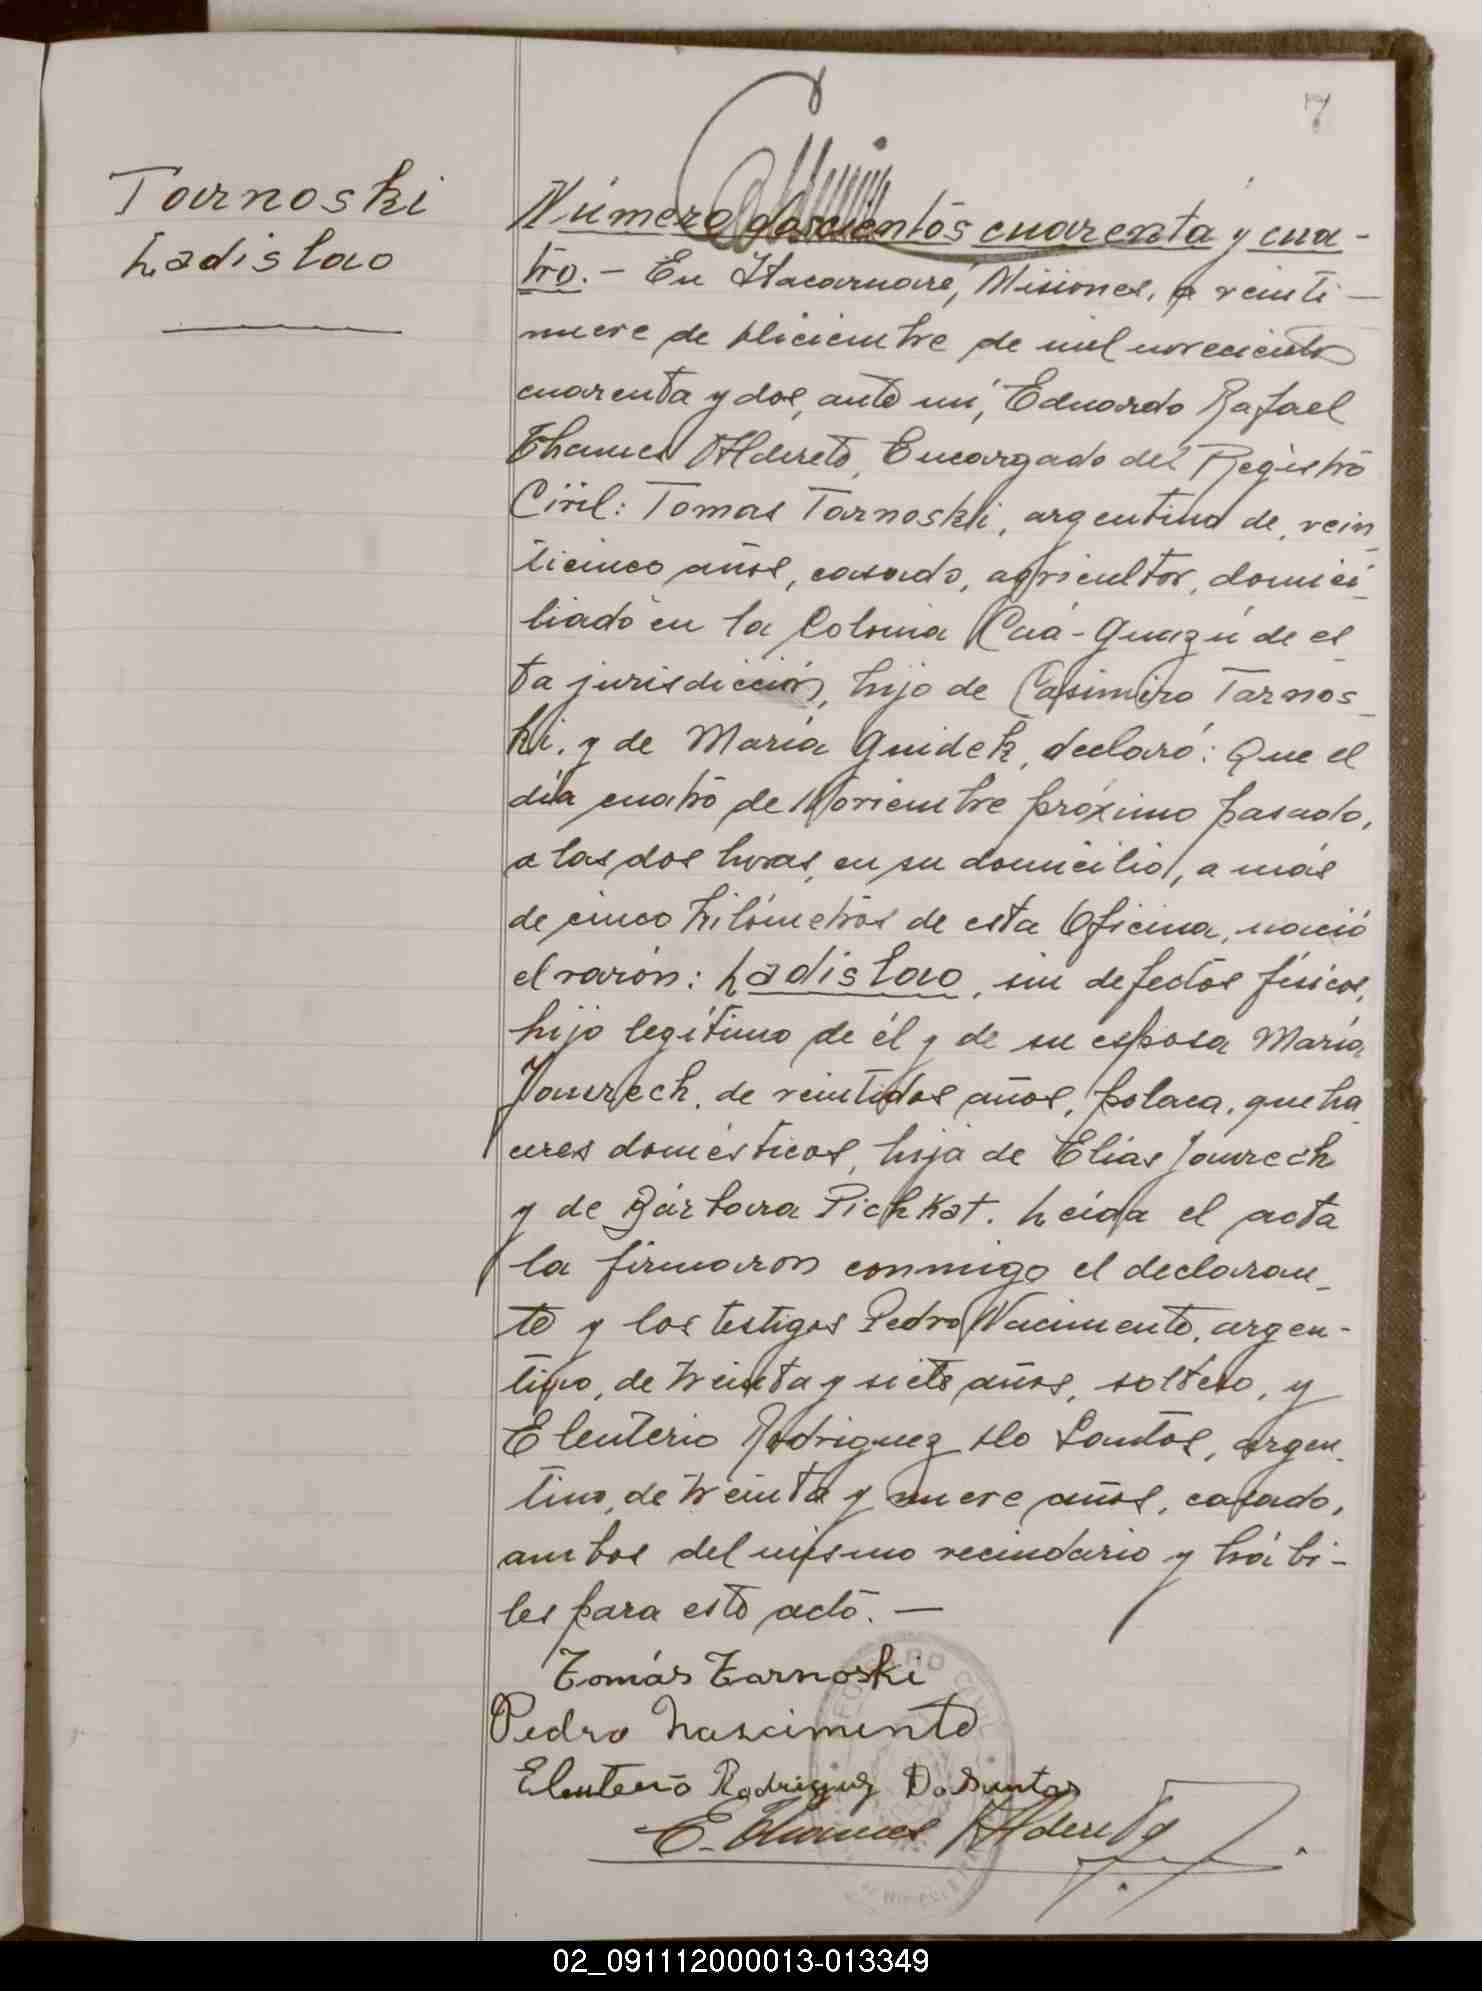 7
Tarnoski
Ladislao
Número doscientos cuarenta y cua-
tro. - En Itacaruaré, Misiones, a veinti-
nueve de Diciembre de mil novecientos
cuarenta y dos, ante mí, Eduardo Rafael
Thames Alderete, Encargado del Registro
Civil: Tomas Tarnoski, argentino de, vein
ticinco años, casado, agricultor, domici
liado en la Colonia Caá-Guazú de es
ta jurisdicción, hijo de Casimiro Tarnos_
ki, y de María Guidek, declaró: Que el
día cuatro de Noviembre próximo pasado,
a las dos horas, en su domicilio, a más
de cinco kilómetros de esta Oficina, nació
el varón: Ladislao, sin defectos físicos,
hijo legítimo de él y de su esposa María
Jaurech, de veintidos años, polaca, queha
ceres domésticos, hija de Elías Jaurech
y de Bárbara Pichkat. Leída el acta
la firmaron conmigo el declaran_
te y los testigos Pedro Nacimento, argen-
tino, de treinta y siete años, soltero, y
Eleuterio Rodriguez Do Santos, argen_
tino, de treinta y nueve años, casado,
ambos del mismo vecindario y hábi-
les para este acto. -
Tomás Tarnoski
Pedro Nascimento
Eleuterio Rodriguez Do Santos
E. Thames Alderete
REGISTRO CIVIL
02_091112000013-013349